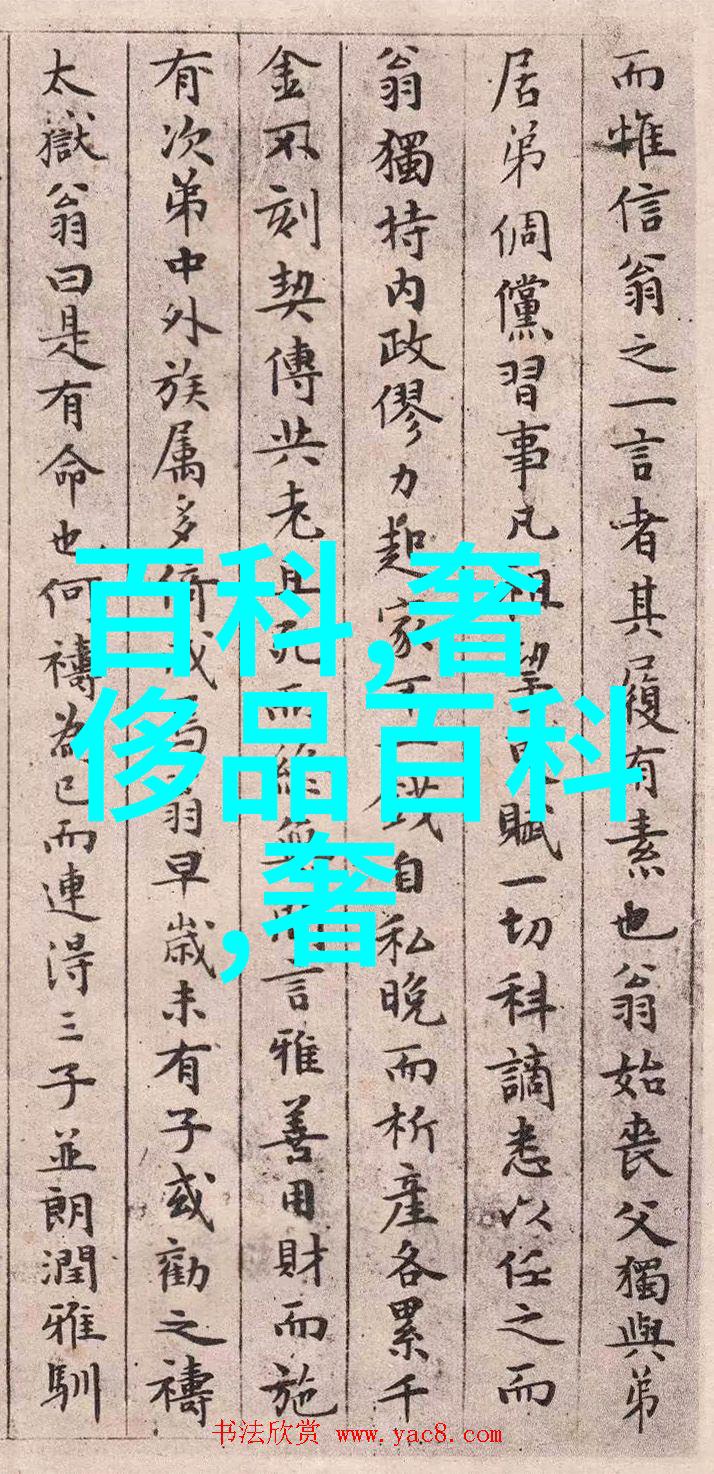 而惟信翁之一言者其履有素也翁始喪父獨與弟
居弟倜儻習事凡租 賦一切科謫悉以任之而
翁獨持内政僇力起家不一錢自私晚而析産各累千
金不刻契傳共老且死而終無 言雅善用財而施
有次第中外族属多倚 翁早歳未有子或勸之禱
太嶽翁曰是有命也何禱為已而連得三子並朗潤雅馴
百科,奢
侈品百科
,奢
书法欣赏 www.yac8.com